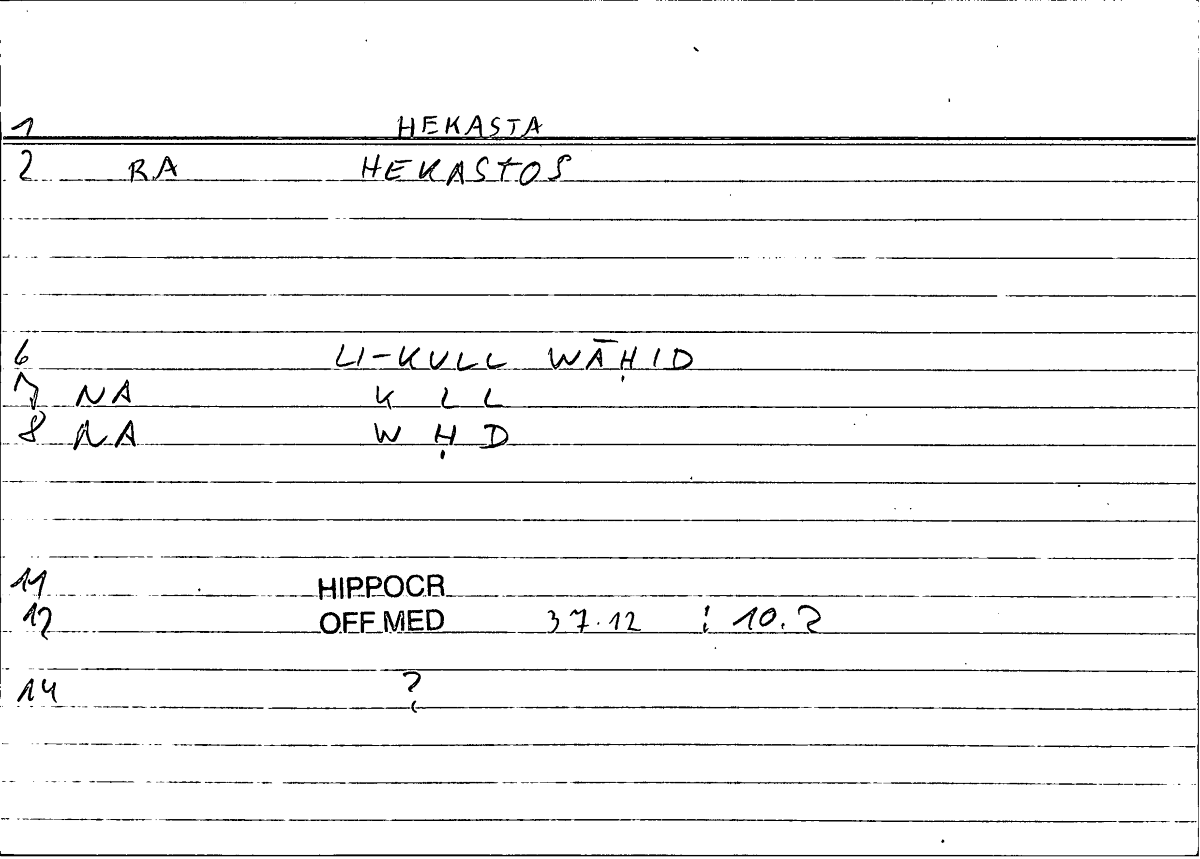 1 HEKASTA
2 RA HEKASTOS
6 LI-KULL WĀḤID
7 NA K L L
8 NA W Ḥ D
11 HIPPOCR
12 OFF MED 37.12 : 10.2
14 ?